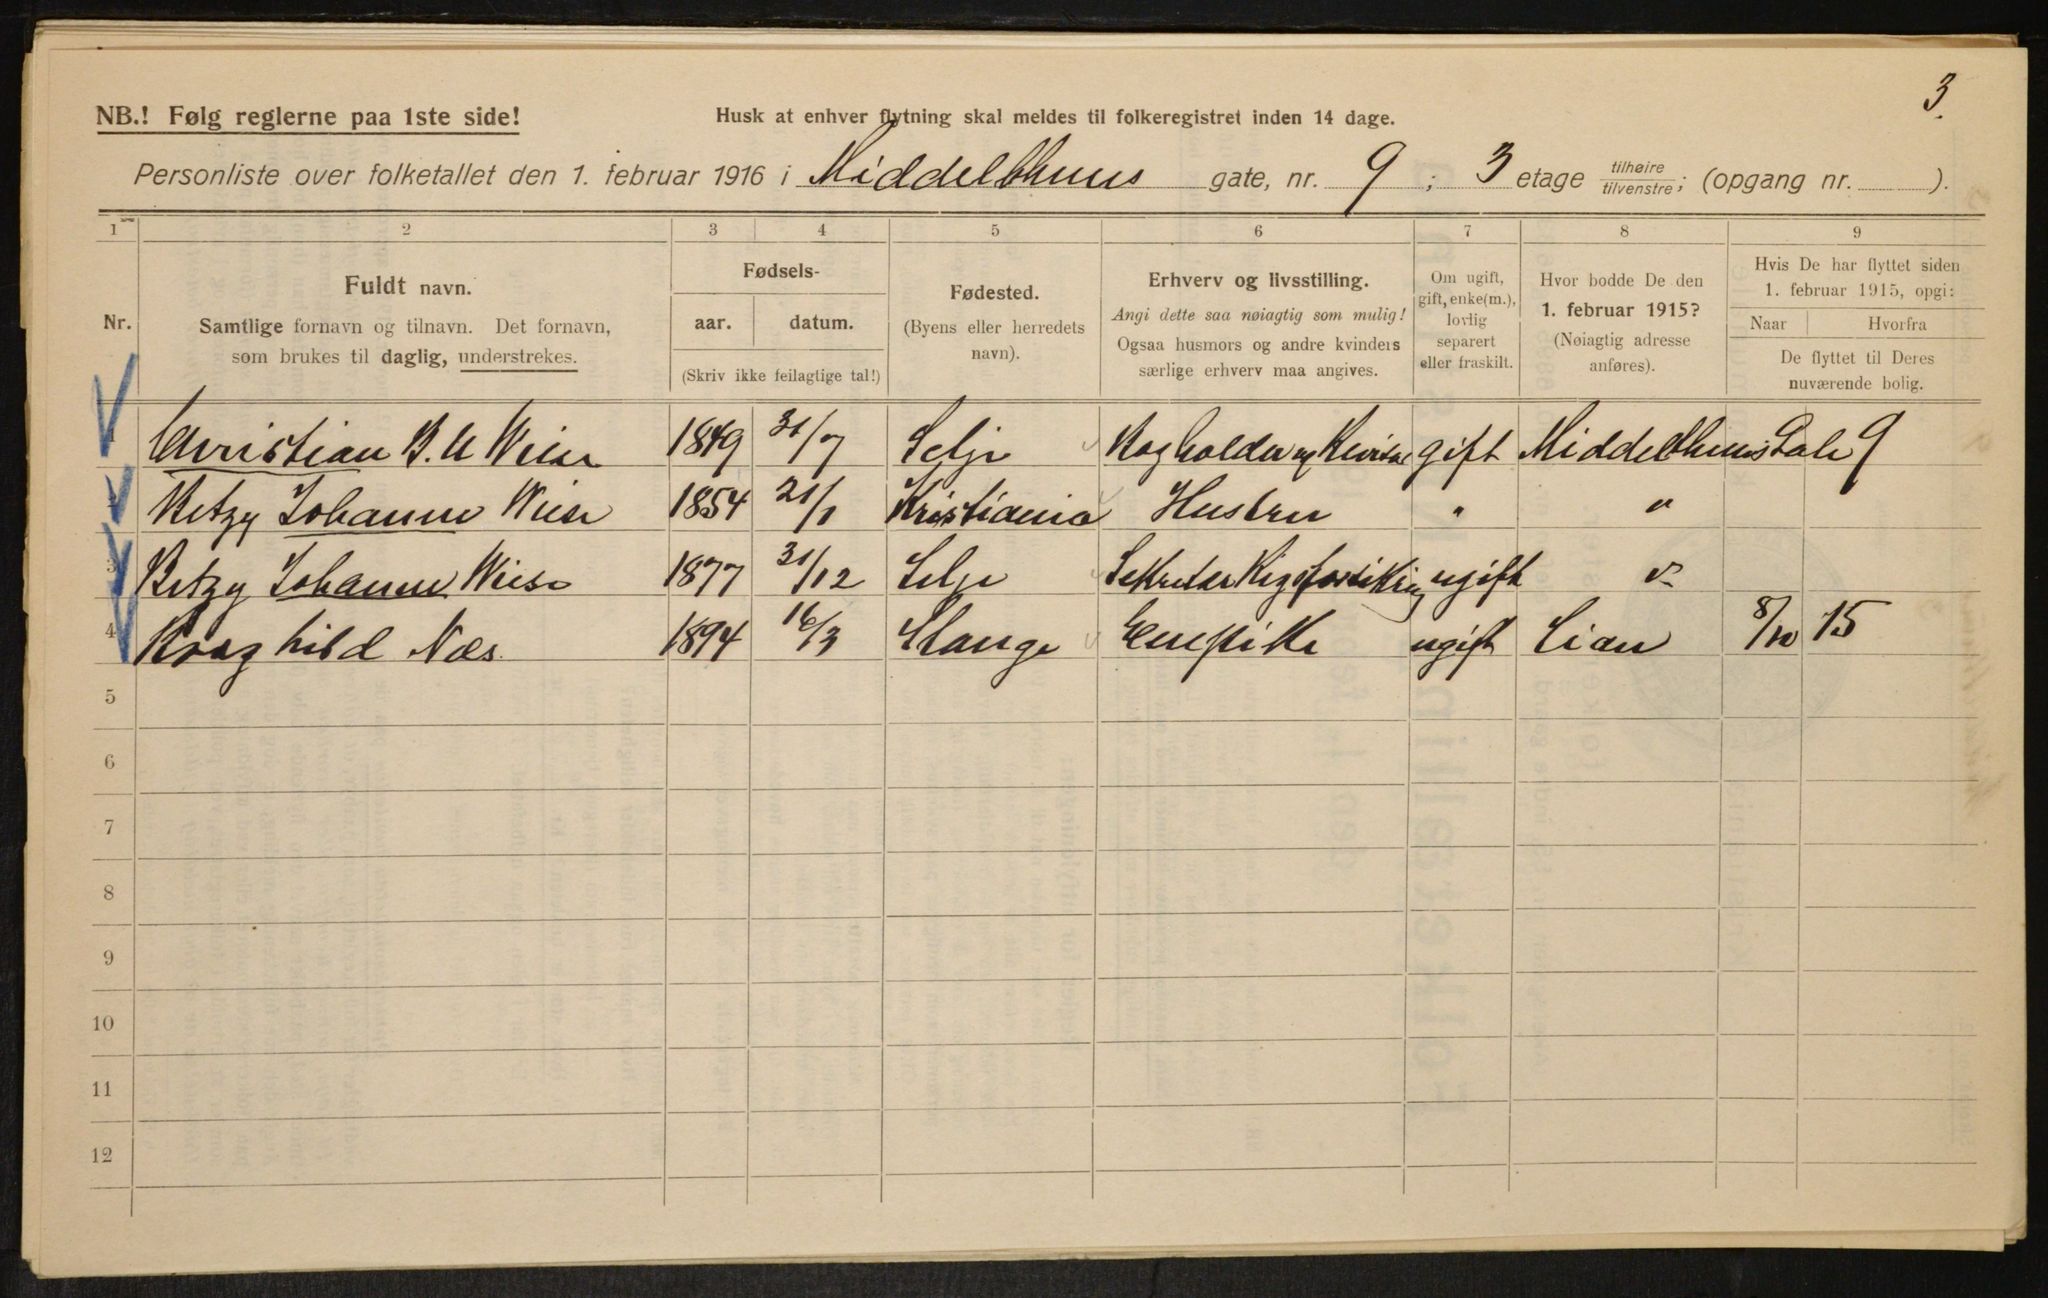 3.
NB.! Følg reglerne paa 1ste side!
Husk at enhver flytning skal meldes til folkeregistret inden 14 dage.
Personliste over folketallet den 1. februar 1916 i Middelthuns gate, nr. 9 ; 3 etage tilhøire tilvenstre; (opgang nr. ).
1 2 3 4 5 6 7 8 9
Nr.
Fuldt navn.
Samtlige fornavn og tilnavn. Det fornavn,
som brukes til daglig, understrekes.
Fødsels-
aar. datum.
(Skriv ikke feilagtige tal!)
Fødested.
(Byens eller herredets
navn).
Erhverv og livsstilling.
Angi dette saa nøiagtig som mulig!
Ogsaa husmors og andre kvinders
særlige erhverv maa angives.
Om ugift,
gift, enke(m.),
lovlig
separert
eller fraskilt.
Hvor bodde De den
1. februar 1915?
(Nøiagtig adresse
anføres).
Hvis De har flyttet siden
1. februar 1915, opgi:
Naar Hvorfra
De flyttet til Deres
nuværende bolig.
1 Christian B. Wiese 1849 31/7 Selje gift Middelthuns Gate 9
2 Betzy Johanne Wiese 1854 21/1 Kristiania Hustru " "
3 Betzy Johanne Wiese 1877 31/12 Selje Sekretær ugift "
4 Raaghild Næs. 1894 16/3 Stange Enepike ugift Lian 8/10 15
5
6
7
8
9
10
11
12